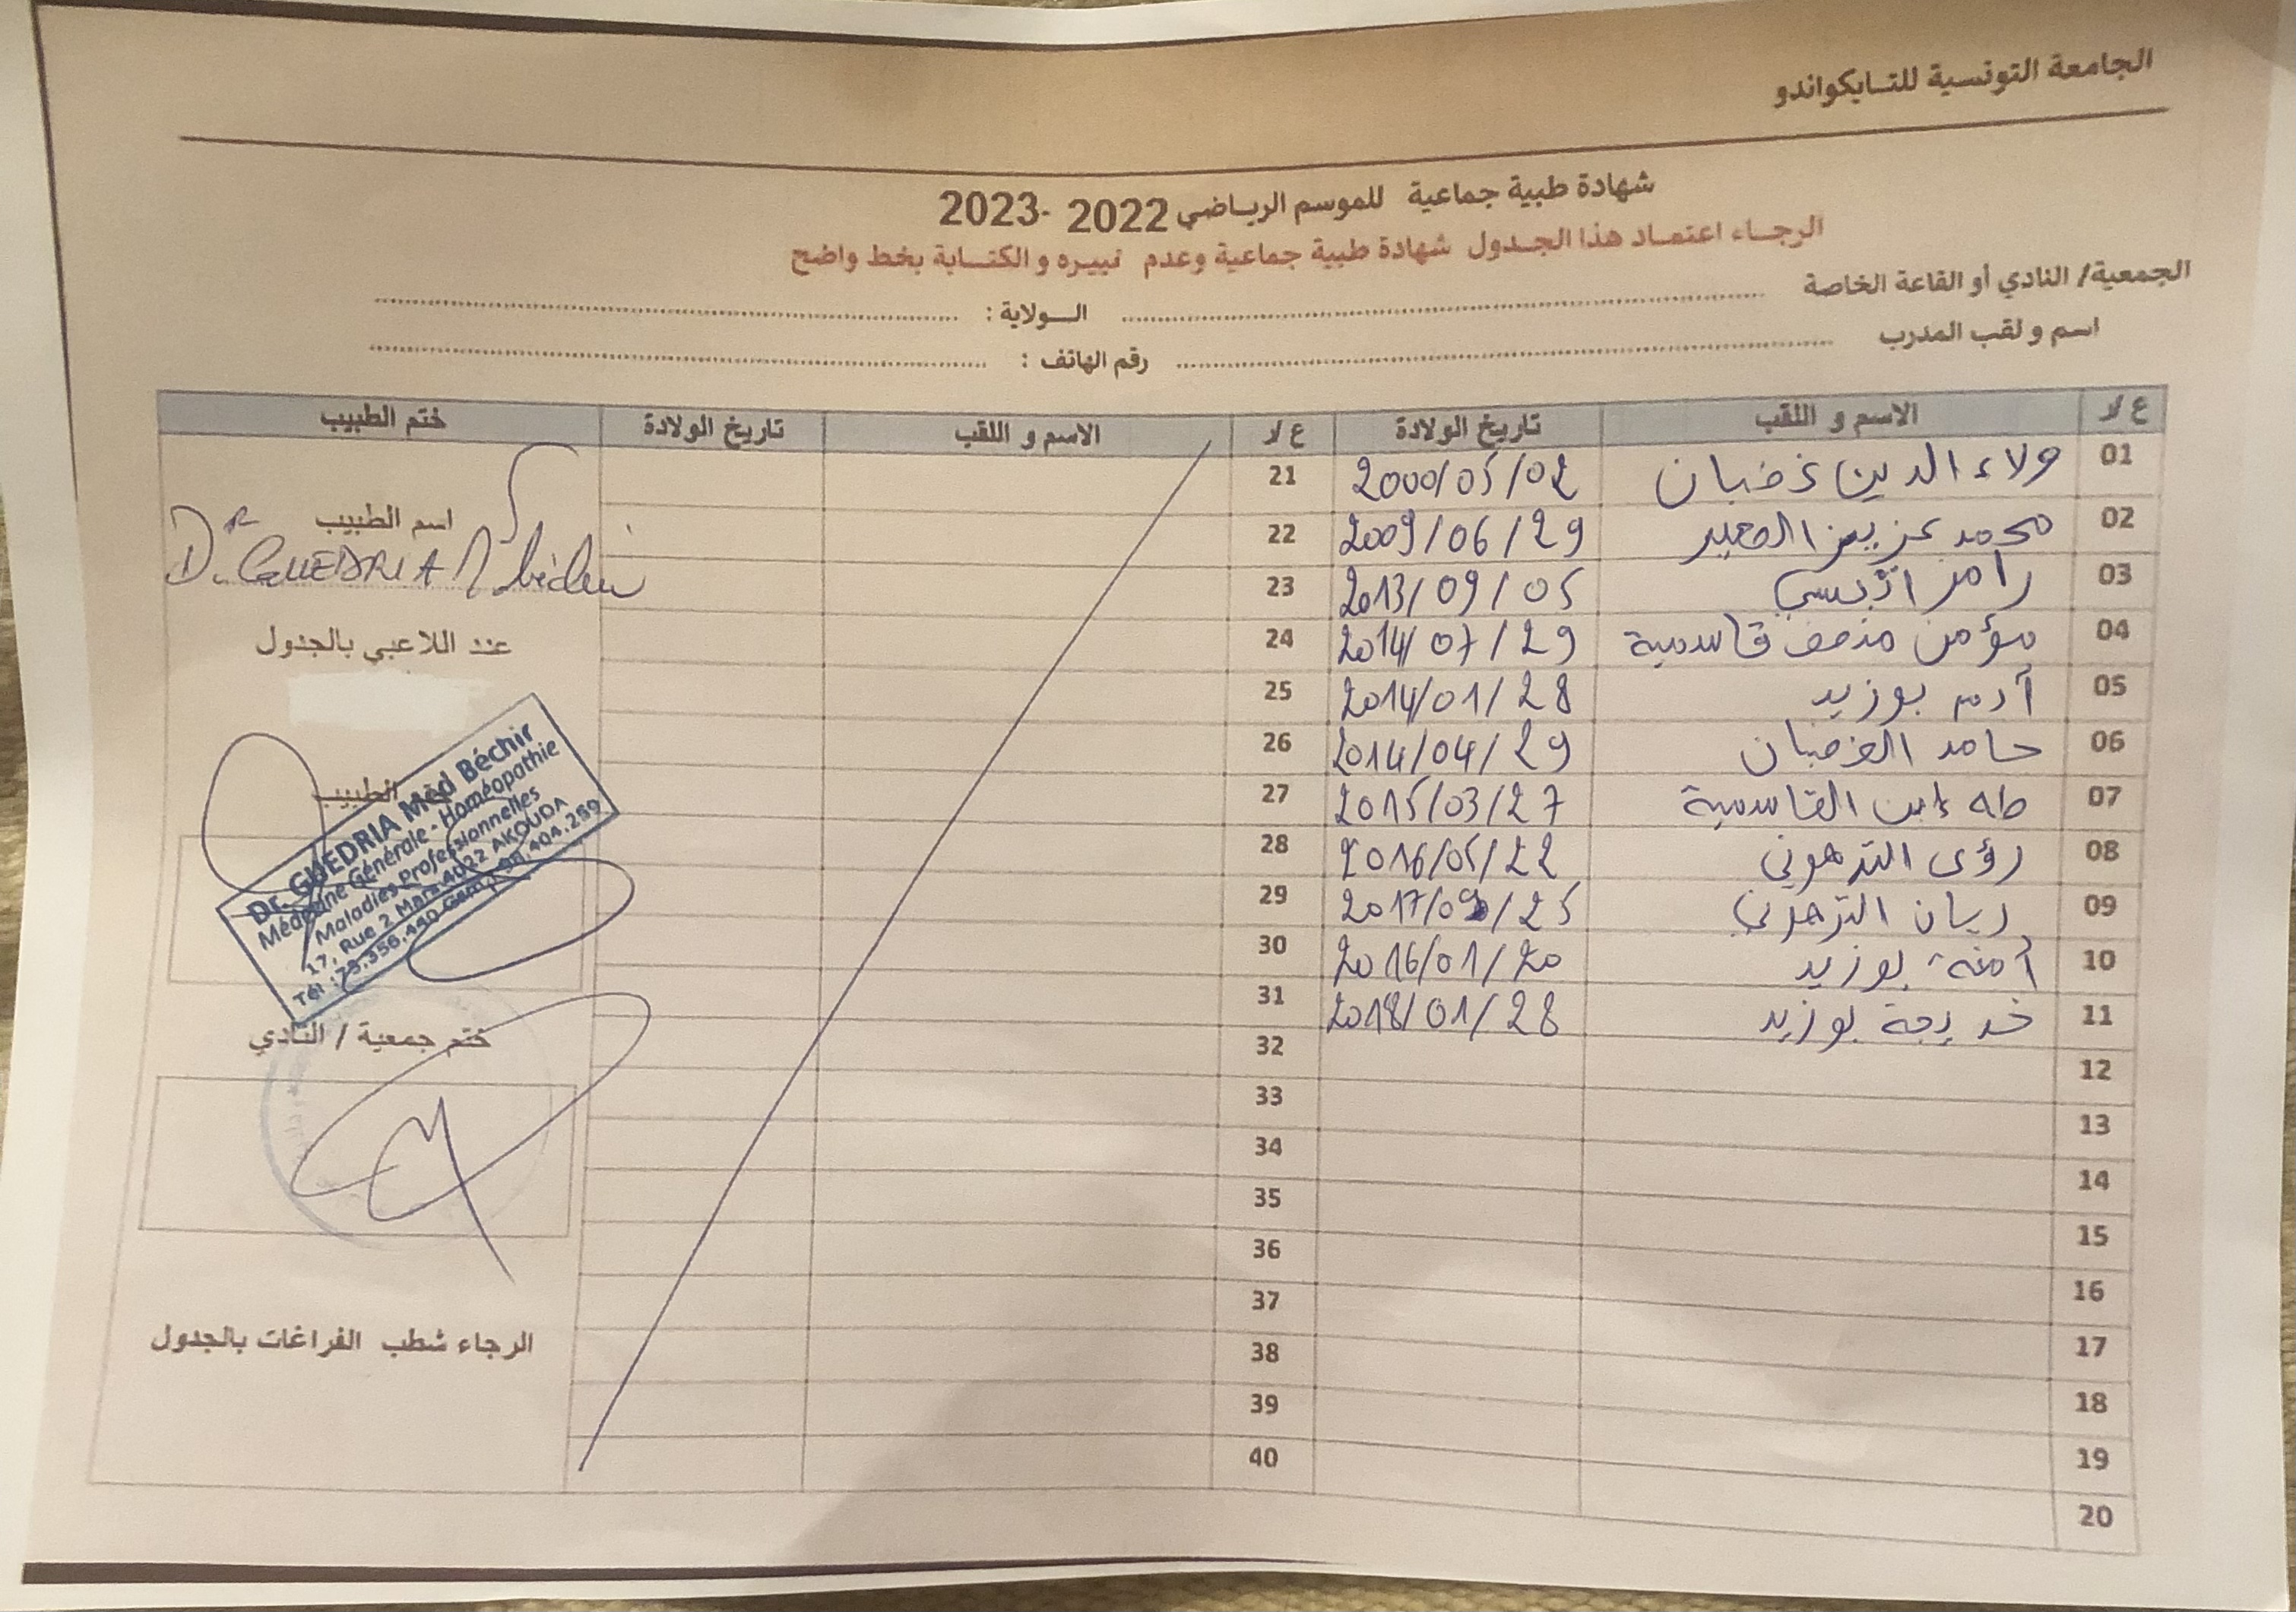 الجامعة التونسية للتايكواندو
شهادة طبية جماعية للموسم الرياضي 2022 -2023
الرجاء اعتماد هذا الجدول شهادة طبية جماعية وعدم تغييره و الكتابة بخط واضح
الجمعية/ النادي أو القاعة الخاصة ........ الولاية : ........
اسم و لقب المدرب ........ رقم الهاتف : ........
ع/د الاسم و اللقب تاريخ الولادة ع/د الاسم و اللقب تاريخ الولادة ختم الطبيب
01 ولاء الدين غضبان 2000/05/02 21
02 محمد عزيز 2009/06/29 22
03 رامز 2013/09/05 23
04 مؤمن منصف قاسمية 2014/07/29 24
05 آدم بوزيد 2014/01/28 25
06 حامد الغضبان 2014/04/29 26
07 طه ابن القاسمية 2015/03/27 27
08 رؤى الترهوني 2016/05/22 28
09 ريان الترهوني 2017/09/25 29
10 آمنة بوزيد 2016/01/20 30
11 خديجة بوزيد 2018/01/28 31
12 32
13 33
14 34
15 35
16 36
17 37
18 38
19 39
20 40
اسم الطبيب
Dr GUEDRIA Méd Béchir
عند اللاعبي بالجدول
الطبيب
Dr. GUEDRIA Méd Béchir
Médecine Générale - Homéopathie
Maladies Professionnelles
17, Rue 2 Mars 4022 AKOUDA
Tél : 73.356.440
404.259
ختم جمعية / النادي
الرجاء شطب الفراغات بالجدول